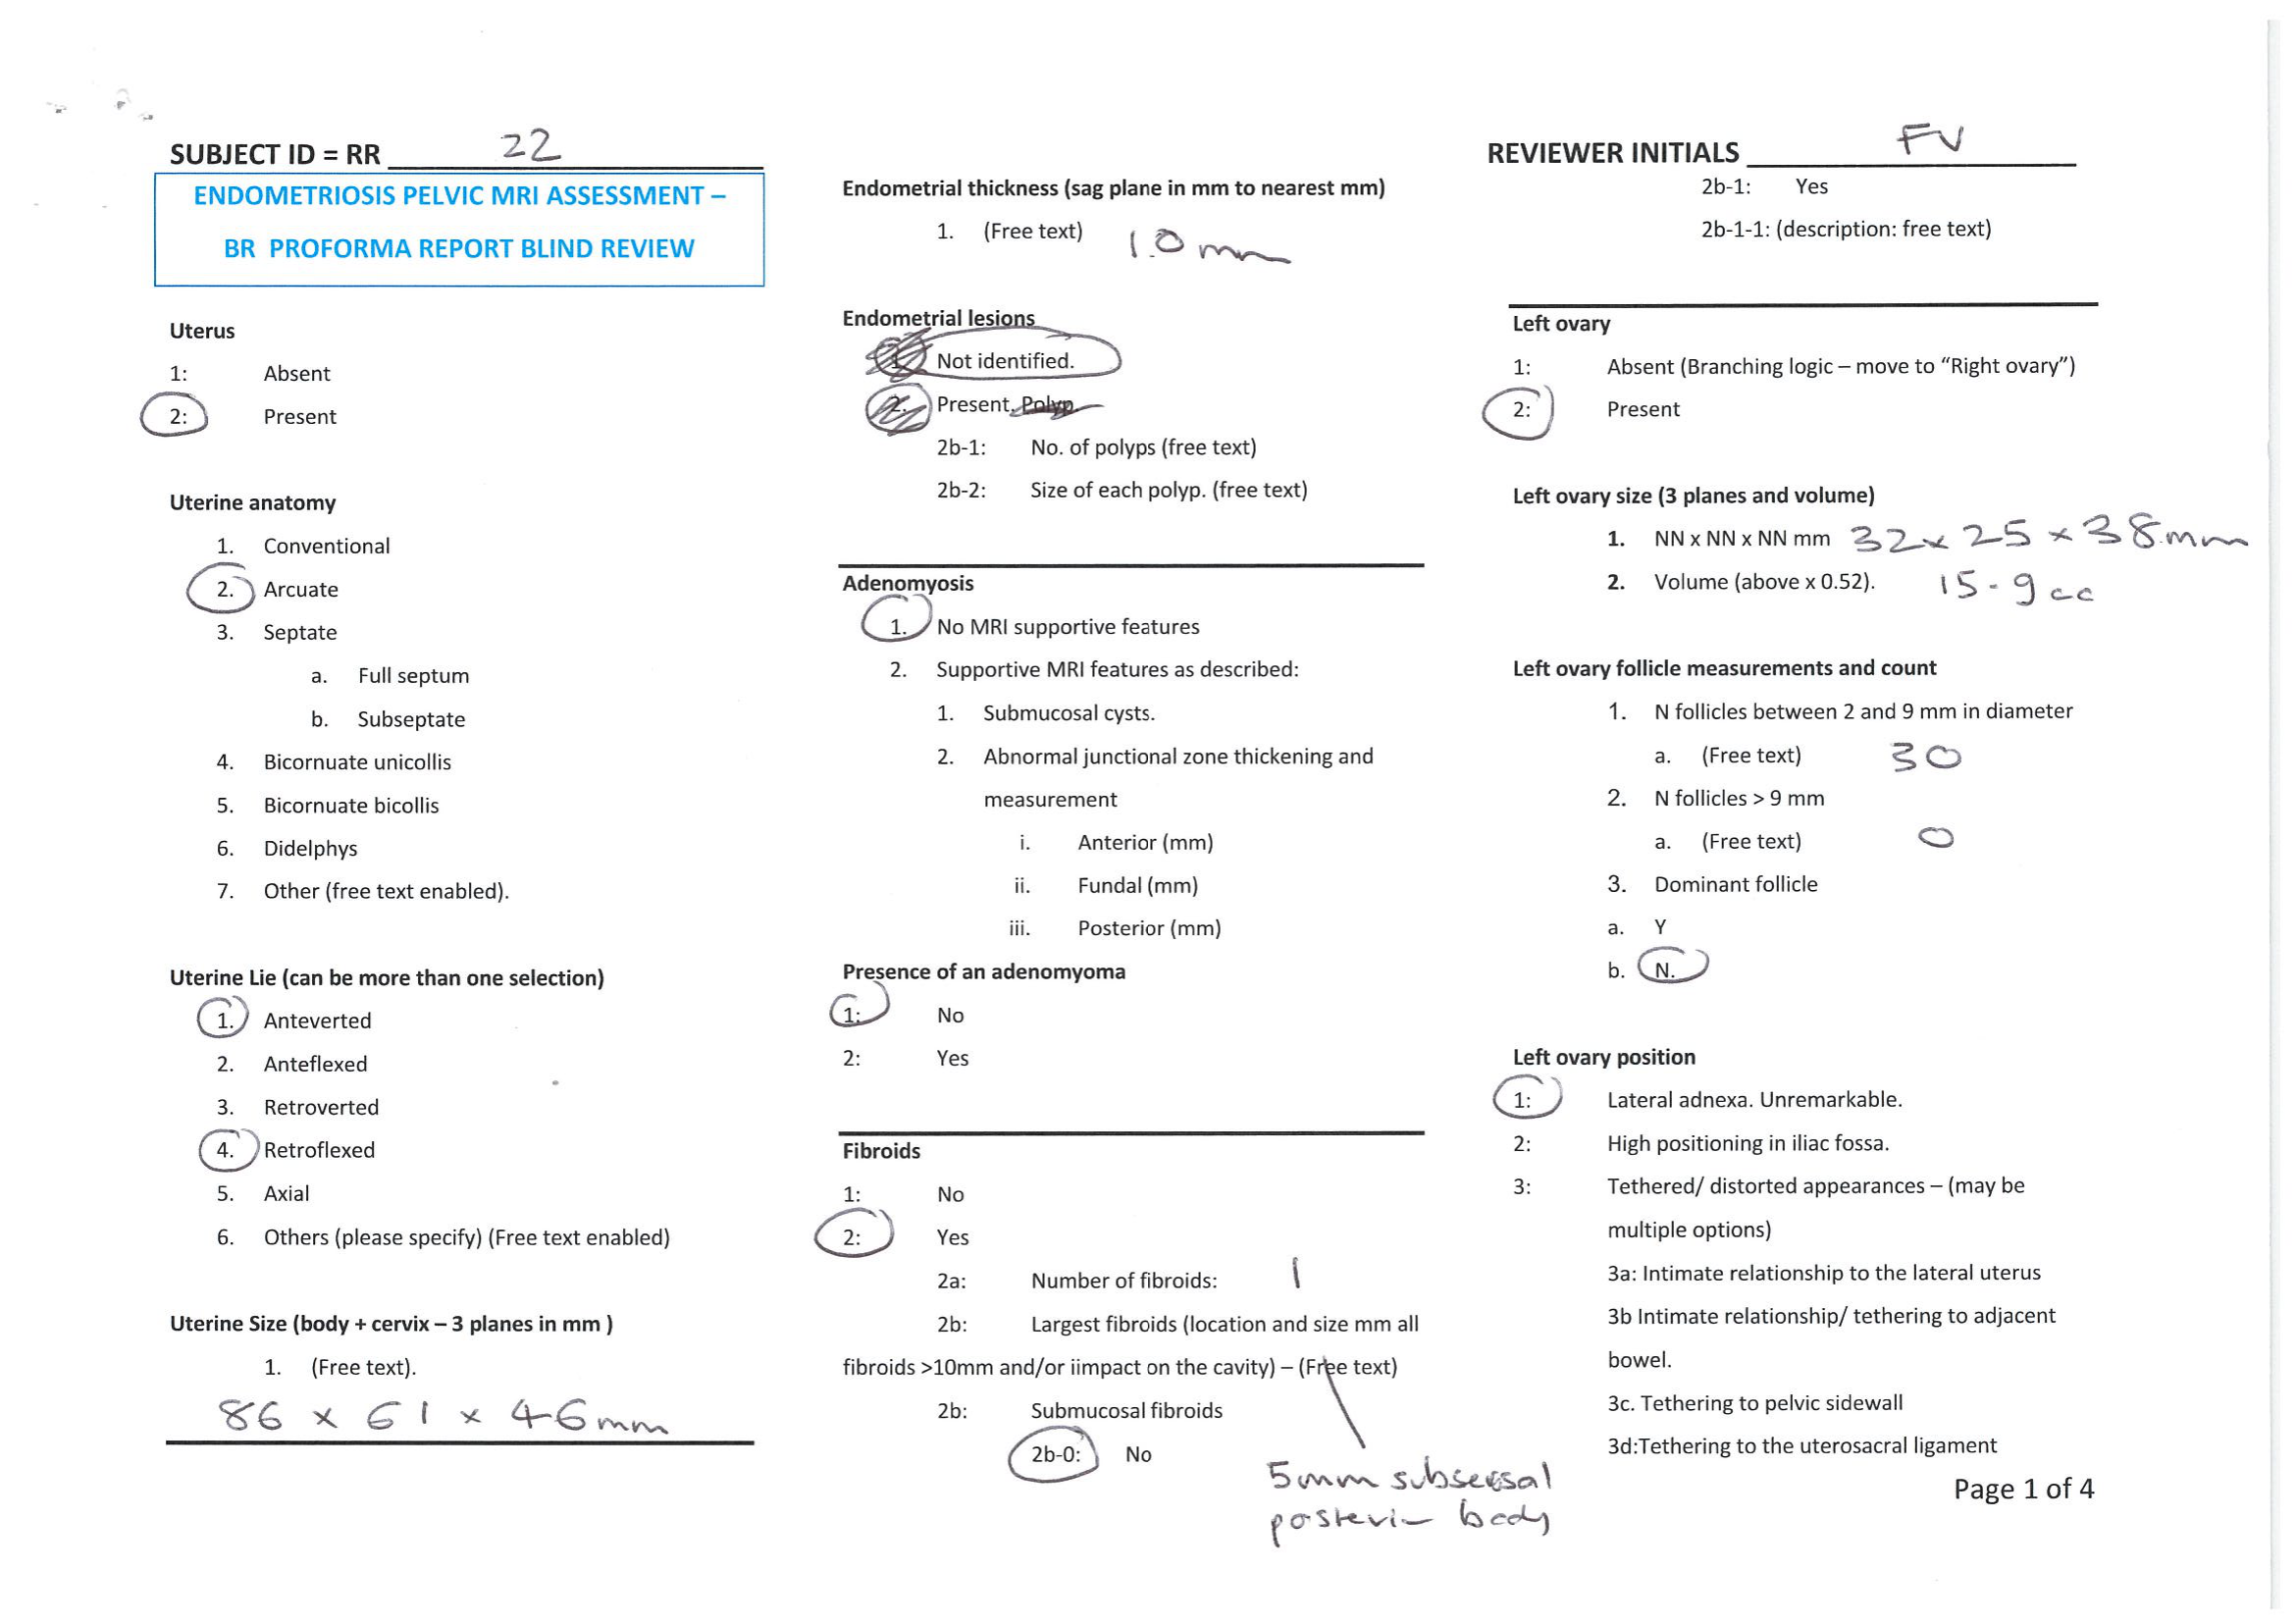 SUBJECT ID = RR 22
ENDOMETRIOSIS PELVIC MRI ASSESSMENT –
BR PROFORMA REPORT BLIND REVIEW
Uterus
1: Absent
2: Present
Uterine anatomy
1. Conventional
2. Arcuate
3. Septate
a. Full septum
b. Subseptate
4. Bicornuate unicollis
5. Bicornuate bicollis
6. Didelphys
7. Other (free text enabled).
Uterine Lie (can be more than one selection)
1. Anteverted
2. Anteflexed
3. Retroverted
4. Retroflexed
5. Axial
6. Others (please specify) (Free text enabled)
Uterine Size (body + cervix – 3 planes in mm )
1. (Free text).
86 x 61 x 46mm
Endometrial thickness (sag plane in mm to nearest mm)
1. (Free text) 10 mm
Endometrial lesions
1. Not identified.
2. Present. Polyp.
2b-1: No. of polyps (free text)
2b-2: Size of each polyp. (free text)
Adenomyosis
1. No MRI supportive features
2. Supportive MRI features as described:
1. Submucosal cysts.
2. Abnormal junctional zone thickening and
measurement
i. Anterior (mm)
ii. Fundal (mm)
iii. Posterior (mm)
Presence of an adenomyoma
1: No
2: Yes
Fibroids
1: No
2: Yes
2a: Number of fibroids: 1
2b: Largest fibroids (location and size mm all
fibroids >10mm and/or iimpact on the cavity) – (Free text)
2b: Submucosal fibroids
2b-0: No
5mm subserosal
posterior body
REVIEWER INITIALS FV
2b-1: Yes
2b-1-1: (description: free text)
Left ovary
1: Absent (Branching logic – move to “Right ovary”)
2: Present
Left ovary size (3 planes and volume)
1. NN x NN x NN mm 32 x 25 x 38mm
2. Volume (above x 0.52). 15.9cc
Left ovary follicle measurements and count
1. N follicles between 2 and 9 mm in diameter
a. (Free text) 30
2. N follicles > 9 mm
a. (Free text) 0
3. Dominant follicle
a. Y
b. N.
Left ovary position
1: Lateral adnexa. Unremarkable.
2: High positioning in iliac fossa.
3: Tethered/ distorted appearances – (may be
multiple options)
3a: Intimate relationship to the lateral uterus
3b Intimate relationship/ tethering to adjacent
bowel.
3c. Tethering to pelvic sidewall
3d:Tethering to the uterosacral ligament
Page 1 of 4